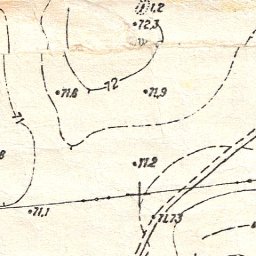 1,2
72,3
71,8
72
71,9
71
8
71.2
71,1
71,73